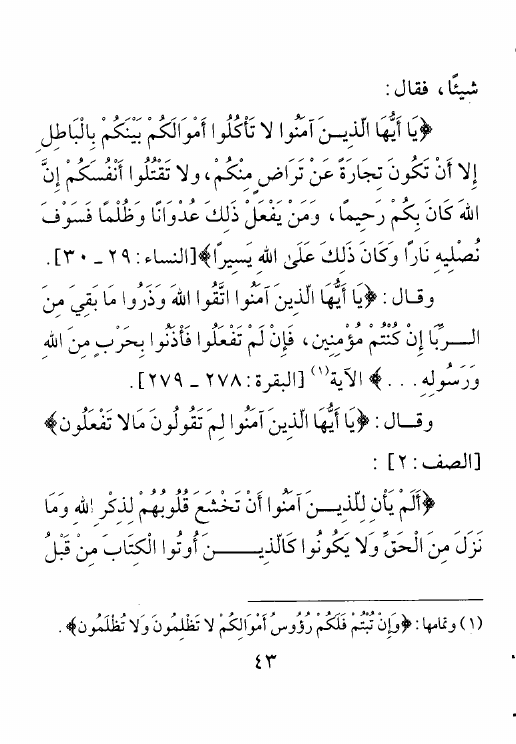 شيئًا، فقال:
﴿يَا أَيُّهَا الَّذِيـنَ آمَنُوا لا تَأْكُلُوا أَمْوَالَكُمْ بَيْنَكُمْ بِالْبَاطِلِ
إِلا أَنْ تَكُونَ تِجَارَةً عَنْ تَرَاضٍ مِنْكُمْ، ولا تَقْتُلُوا أَنْفُسَكُمْ إِنَّ
اللهَ كَانَ بِكُمْ رَحِيمًا، وَمَنْ يَفْعَلْ ذَلِكَ عُدْوَانًا وَظُلْمًا فَسَوْفَ
نُصْلِيهِ نَارًا وَكَانَ ذَلِكَ عَلَىٰ اللهِ يَسِيرًا﴾ [النساء: ٢٩ ـ ٣٠].
وقـال: ﴿يَا أَيُّهَا الَّذِينَ آمَنُوا اتَّقُوا اللهَ وَذَرُوا مَا بَقِيَ مِنَ
الـــرِّبَا إِنْ كُنْتُمْ مُؤْمِنِين، فَإِنْ لَمْ تَفْعَلُوا فَأْذَنُوا بِحَرْبٍ مِنَ اللهِ
وَرَسُولِهِ . . . ﴾ الآية(١) [البقرة: ٢٧٨ ـ ٢٧٩].
وقــال: ﴿يَا أَيُّهَا الَّذِينَ آمَنُوا لِمَ تَقُولُونَ مَالا تَفْعَلُون﴾
[الصف: ٢] :
﴿أَلَمْ يَأْنِ لِلَّذِيـــنَ آمَنُوا أَنْ تَخْشَعَ قُلُوبُهُمْ لِذِكْرِ اللهِ وَمَا
نَزَلَ مِنَ الْحَقِّ وَلا يَكُونُوا كَالَّذِيــــــنَ أُوتُوا الْكِتَابَ مِنْ قَبْلُ
(١) وتمامها: ﴿وَإِنْ تُبْتُمْ فَلَكُمْ رُؤُوسُ أَمْوَالِكُمْ لا تَظْلِمُونَ وَلا تُظْلَمُون﴾.
٤٣